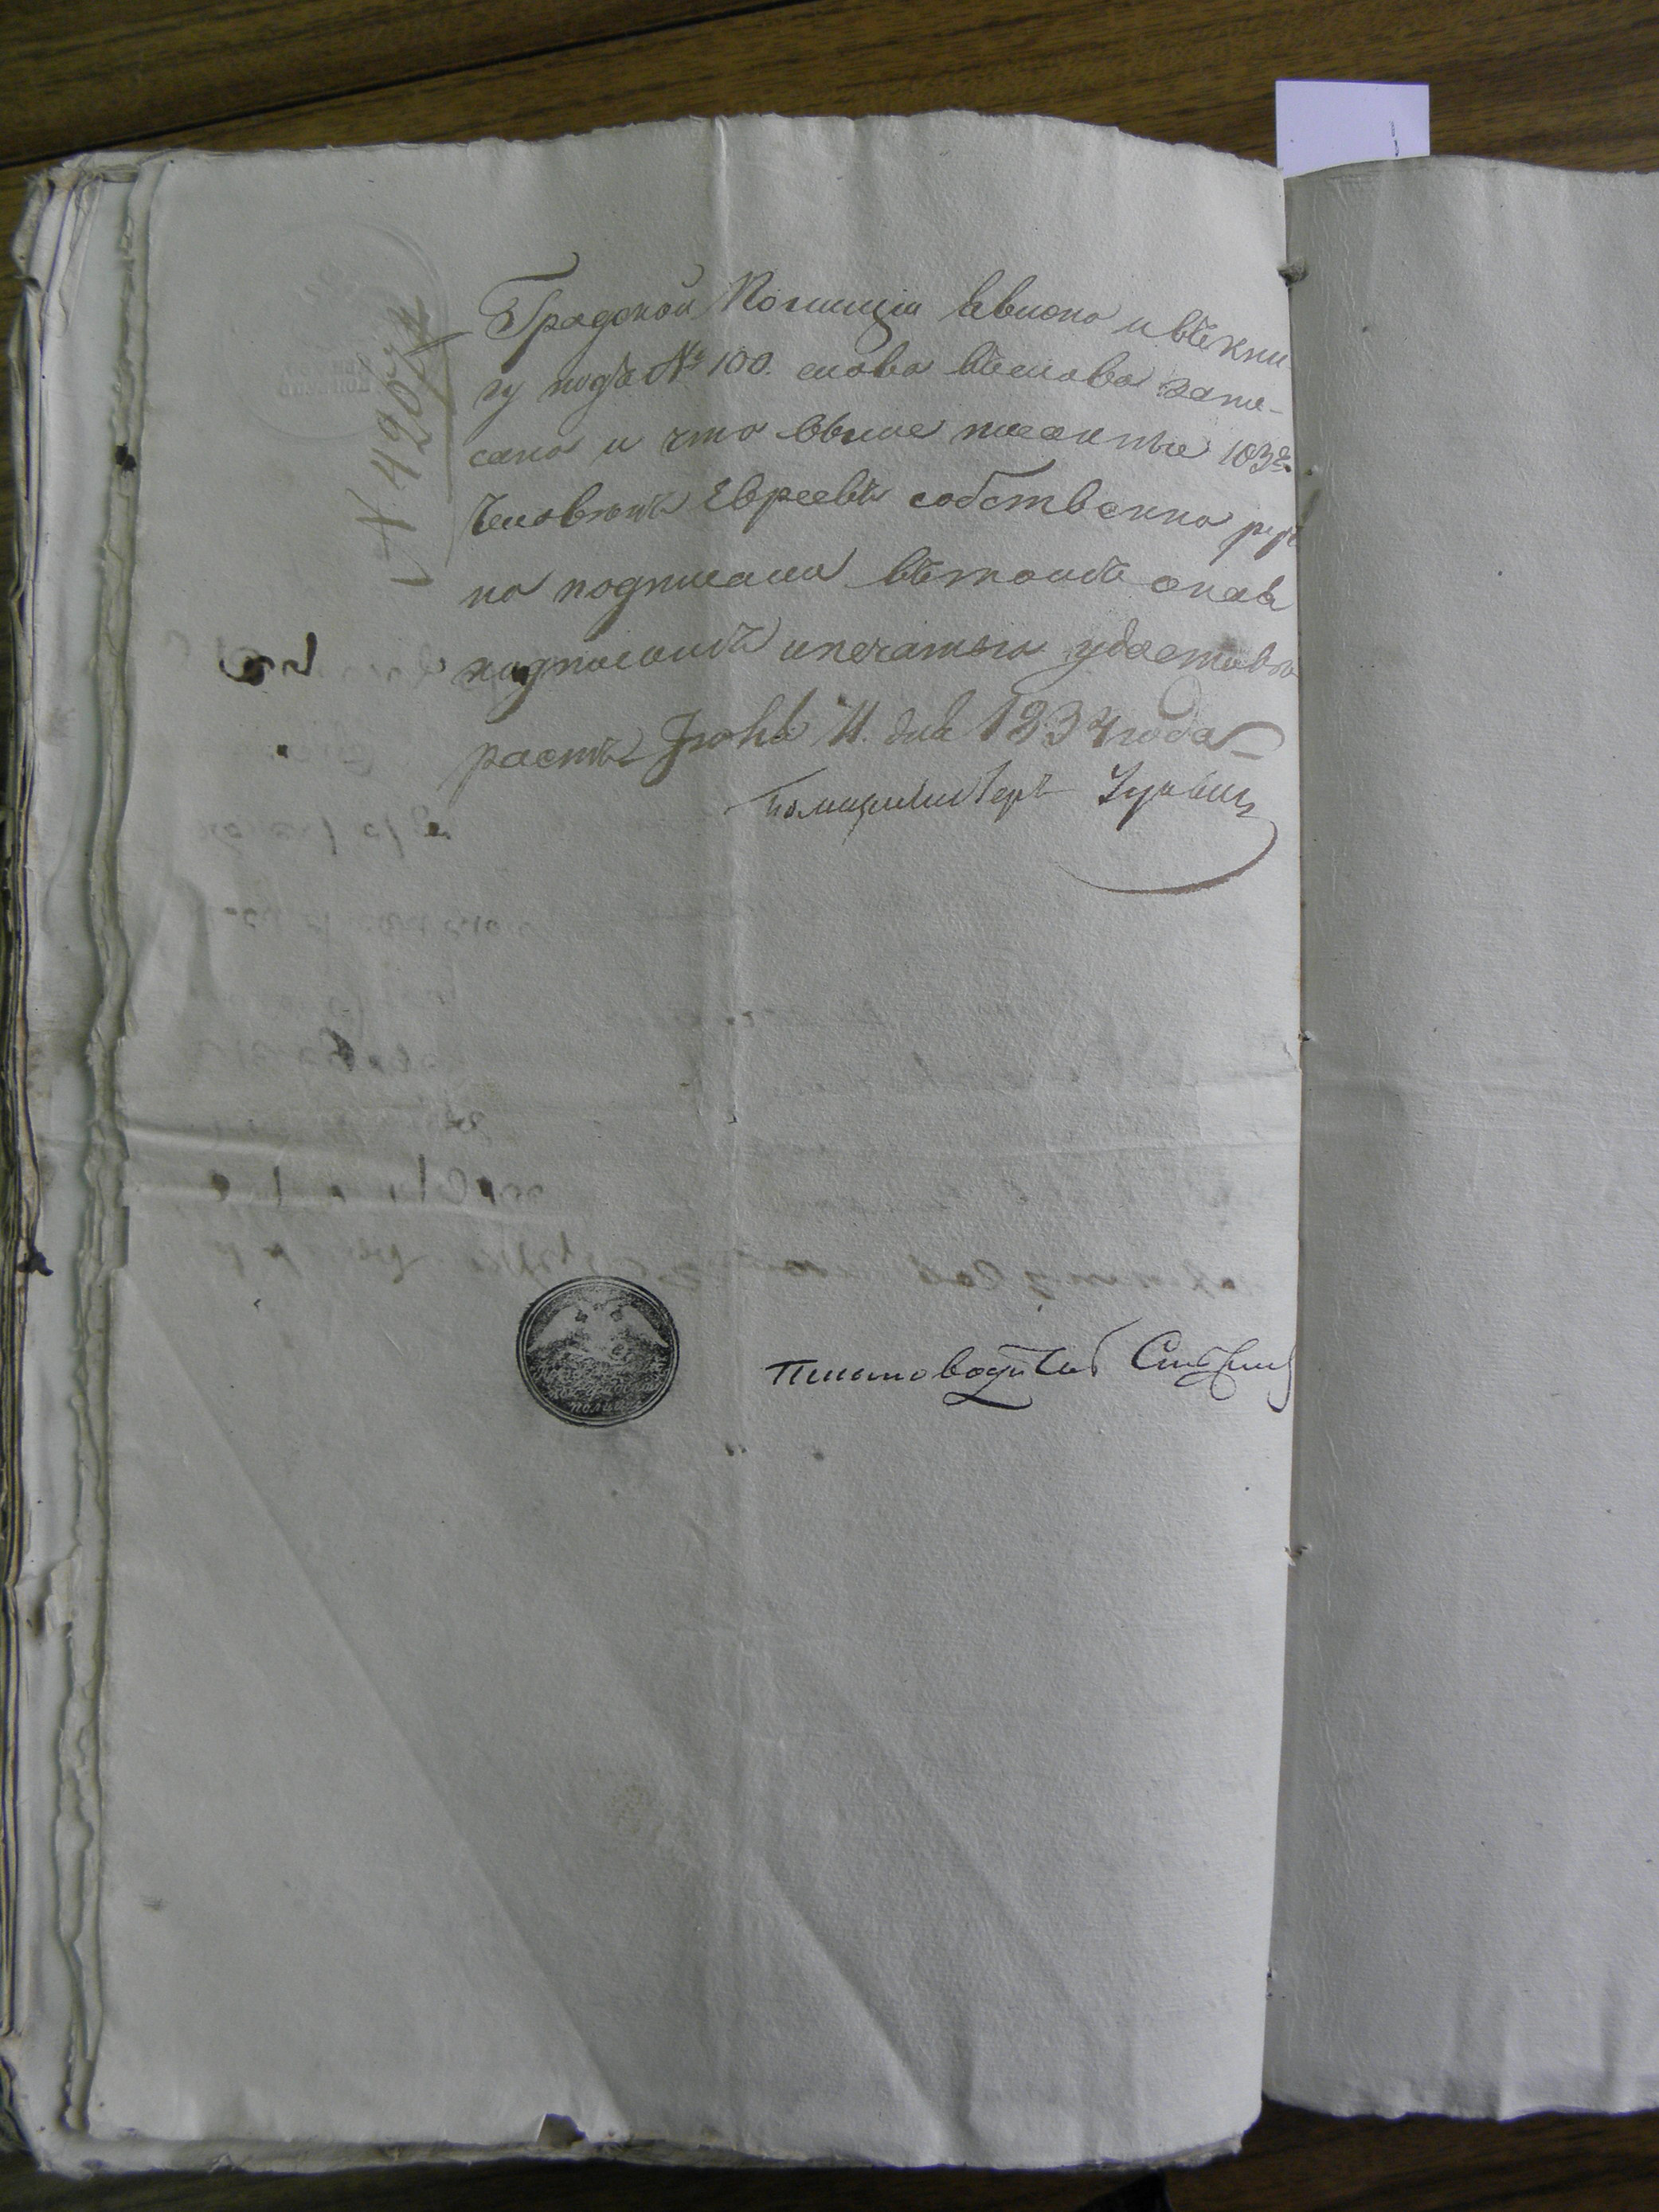 № 4207
Градской Полиціи явлено и въ кни-
гу подъ № 100. слово въ слово запи-
сано и что выше писанные 103е.
Человекъ Евреевъ собственно руч
но подписали въ томъ оная
подписомъ и печатью удостовѣ
раетъ Іюня 11. дня 1834 года
Полицмейстеръ
Письмоводитель
полиц